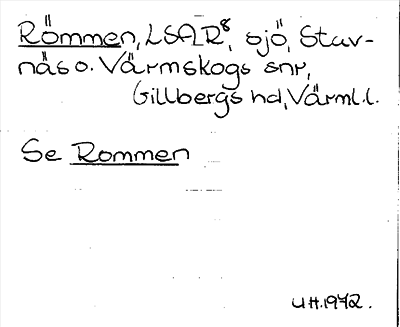 Römmen, LSAR⁸, sjö, Stav-
näs o. Värmskogs snr,
Gillbergs hd, Värml.l.
Se Rommen
U H. 1972.